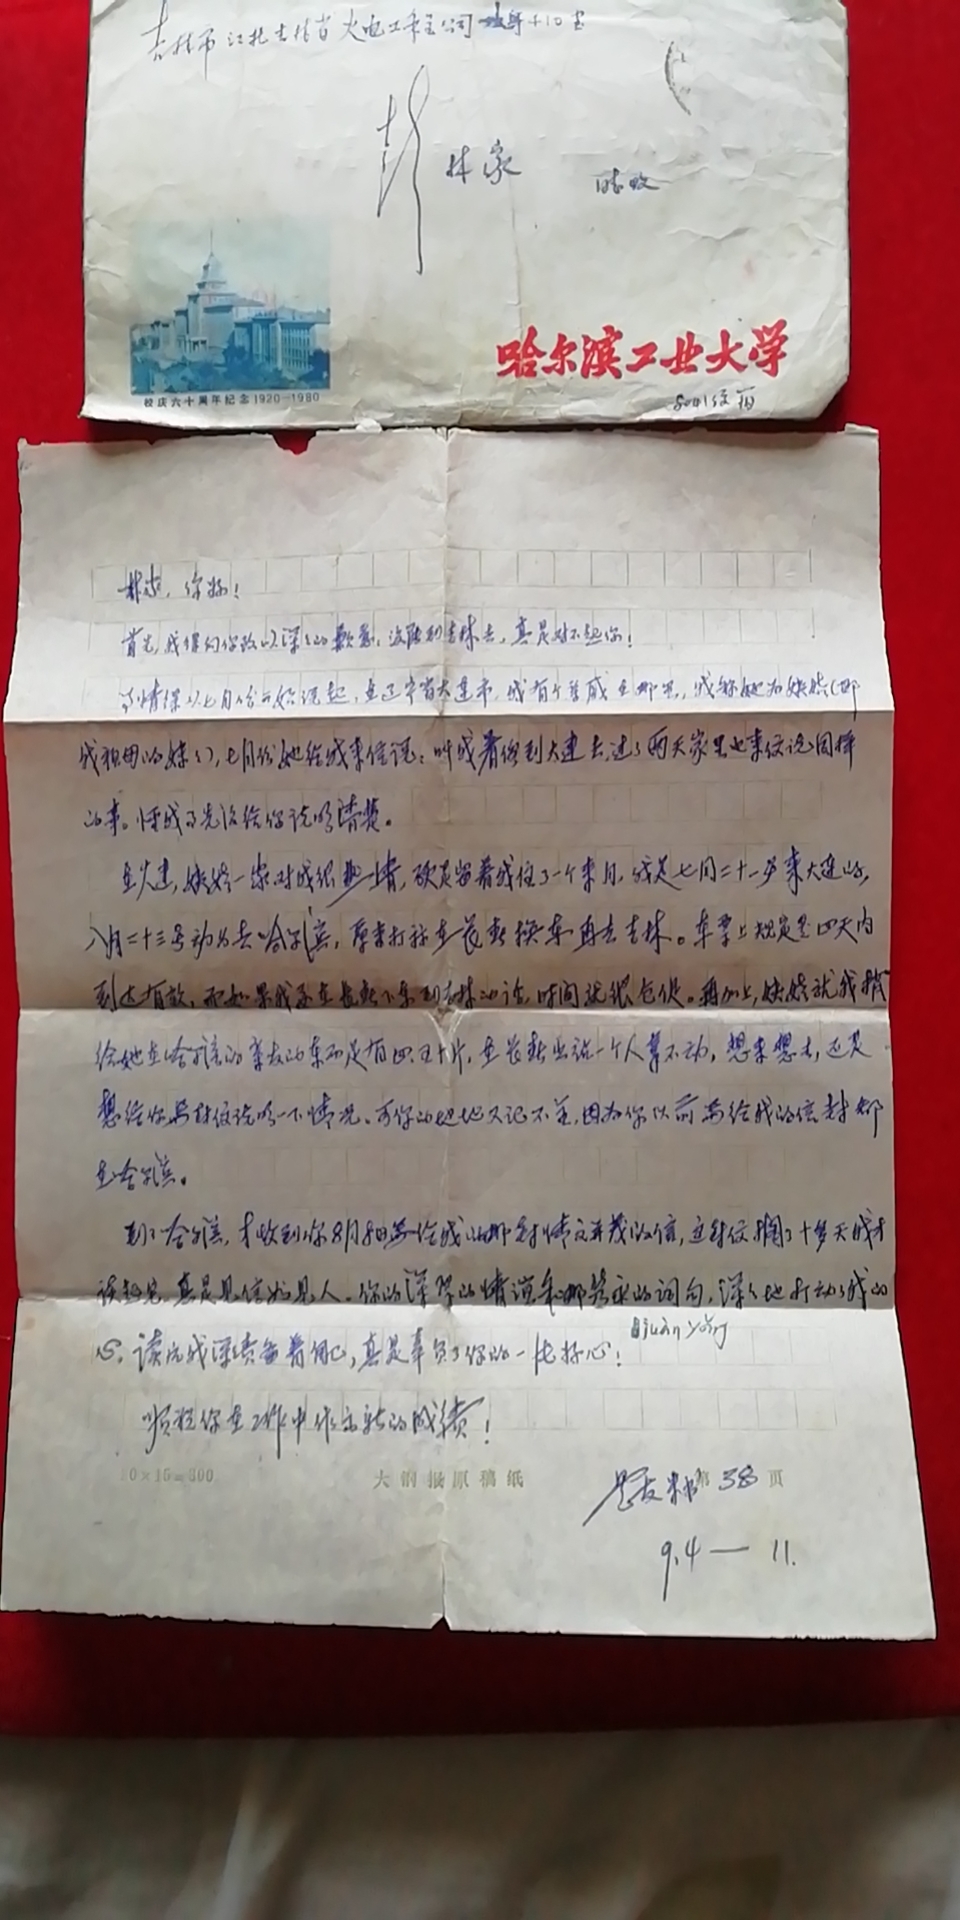 吉林市江北吉林省火电工程公司
彭
林家
收
校庆六十周年纪念1920—1980
哈尔滨工业大学
林家，你好！
首先，我得向你致以深深的歉意，没能到吉林去，真是对不起你！
事情得从七月份开始说起，在辽宁省大连市，我有个亲戚在那里，我称她为姨姥（即
我祖母的妹妹），七月份她给我来信说：叫我暑假到大连去，过了两天家里也来信说同样
的事。怪我了先没给你说明情楚。
在大连，姨姥一家对我很热情，硬是留着我住了一个来月，我是七月二十一号来大连的，
八月二十三号动身去哈尔滨，原来打称在长春换车再去吉林。车票上规定是四天内
到达有效，而如果我在长春下车到吉林的话，时间就很仓促。再加上，姨姥就我捎
给她在哈尔滨的亲友的东西足有四、五十斤，在长春出站一个人拿不动，想来想去，还是
想给你写封信说明一下情况。可你的地址又记不全，因为你以前写给我的信封都
在哈尔滨。
到了哈尔滨，才收到你8月8日写给我的那封情文并茂的信，这封信搁了十多天我才
读起它，真是见信如见人。你的深厚的情谊和那隽永的词句，深深地打动了我的
心。读后我深责备着自己，真是辜负了你的一片好心！
juàn yǒng
顺祝你在工作中作出新的成绩！
20×15=300
大钢报原稿纸
第 38 页
9.4 — 11.